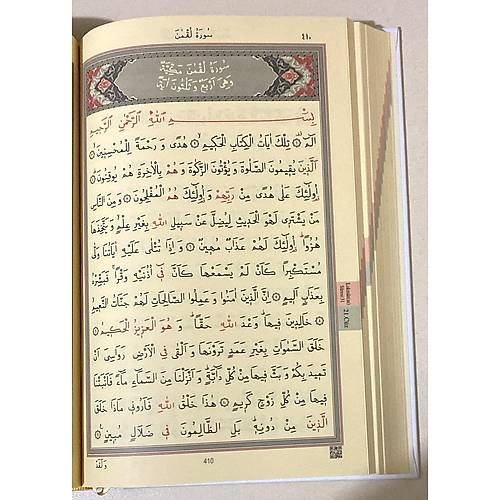 سُورَةُ لُقْمٰنَ
٤١٠
سُورَةُ لُقْمٰنَ مَكِّيَّةٌ
وَهِيَ اَرْبَعٌ وَثَلٰثُونَ اٰيَةً
بِسْــــمِ اللّٰهِ الرَّحْمٰنِ الرَّح۪يمِ
الٓمٓ ۚ ﴿١﴾ تِلْكَ اٰيَاتُ الْكِتَابِ الْحَك۪يمِۙ ﴿٢﴾ هُدًى وَرَحْمَةً لِلْمُحْسِن۪ينَۙ ﴿٣﴾
اَلَّذ۪ينَ يُق۪يمُونَ الصَّلٰوةَ وَيُؤْتُونَ الزَّكٰوةَ وَهُمْ بِالْاٰخِرَةِ هُمْ يُوقِنُونَۜ ﴿٤﴾
اُو۬لٰٓئِكَ عَلٰى هُدًى مِنْ رَبِّهِمْ وَاُو۬لٰٓئِكَ هُمُ الْمُفْلِحُونَ ﴿٥﴾ وَمِنَ النَّاسِ
مَنْ يَشْتَر۪ي لَهْوَ الْحَد۪يثِ لِيُضِلَّ عَنْ سَب۪يلِ اللّٰهِ بِغَيْرِ عِلْمٍۗ وَيَتَّخِذَهَا
هُزُوًاۜ اُو۬لٰٓئِكَ لَهُمْ عَذَابٌ مُه۪ينٌ ﴿٦﴾ وَاِذَا تُتْلٰى عَلَيْهِ اٰيَاتُنَا وَلّٰى
مُسْتَكْبِرًا كَاَنْ لَمْ يَسْمَعْهَا كَاَنَّ ف۪ٓي اُذُنَيْهِ وَقْرًاۚ فَبَشِّرْهُ
بِعَذَابٍ اَل۪يمٍ ﴿٧﴾ اِنَّ الَّذ۪ينَ اٰمَنُوا وَعَمِلُوا الصَّالِحَاتِ لَهُمْ جَنَّاتُ النَّع۪يمِۙ
﴿٨﴾ خَالِد۪ينَ ف۪يهَاۜ وَعْدَ اللّٰهِ حَقًّاۜ وَهُوَ الْعَز۪يزُ الْحَك۪يمُ ﴿٩﴾
خَلَقَ السَّمٰوَاتِ بِغَيْرِ عَمَدٍ تَرَوْنَهَا وَاَلْقٰى فِي الْاَرْضِ رَوَاسِيَ اَنْ
تَم۪يدَ بِكُمْ وَبَثَّ ف۪يهَا مِنْ كُلِّ دَٓابَّةٍۜ وَاَنْزَلْنَا مِنَ السَّمَٓاءِ مَٓاءً فَاَنْبَتْنَا
ف۪يهَا مِنْ كُلِّ زَوْجٍ كَر۪يمٍ ﴿١٠﴾ هٰذَا خَلْقُ اللّٰهِ فَاَرُون۪ي مَاذَا خَلَقَ
الَّذ۪ينَ مِنْ دُونِه۪ۜ بَلِ الظَّالِمُونَ ف۪ي ضَلَالٍ مُب۪ينٍ۟ ﴿١١﴾
وَلَقَدْ
410
21.Cüz